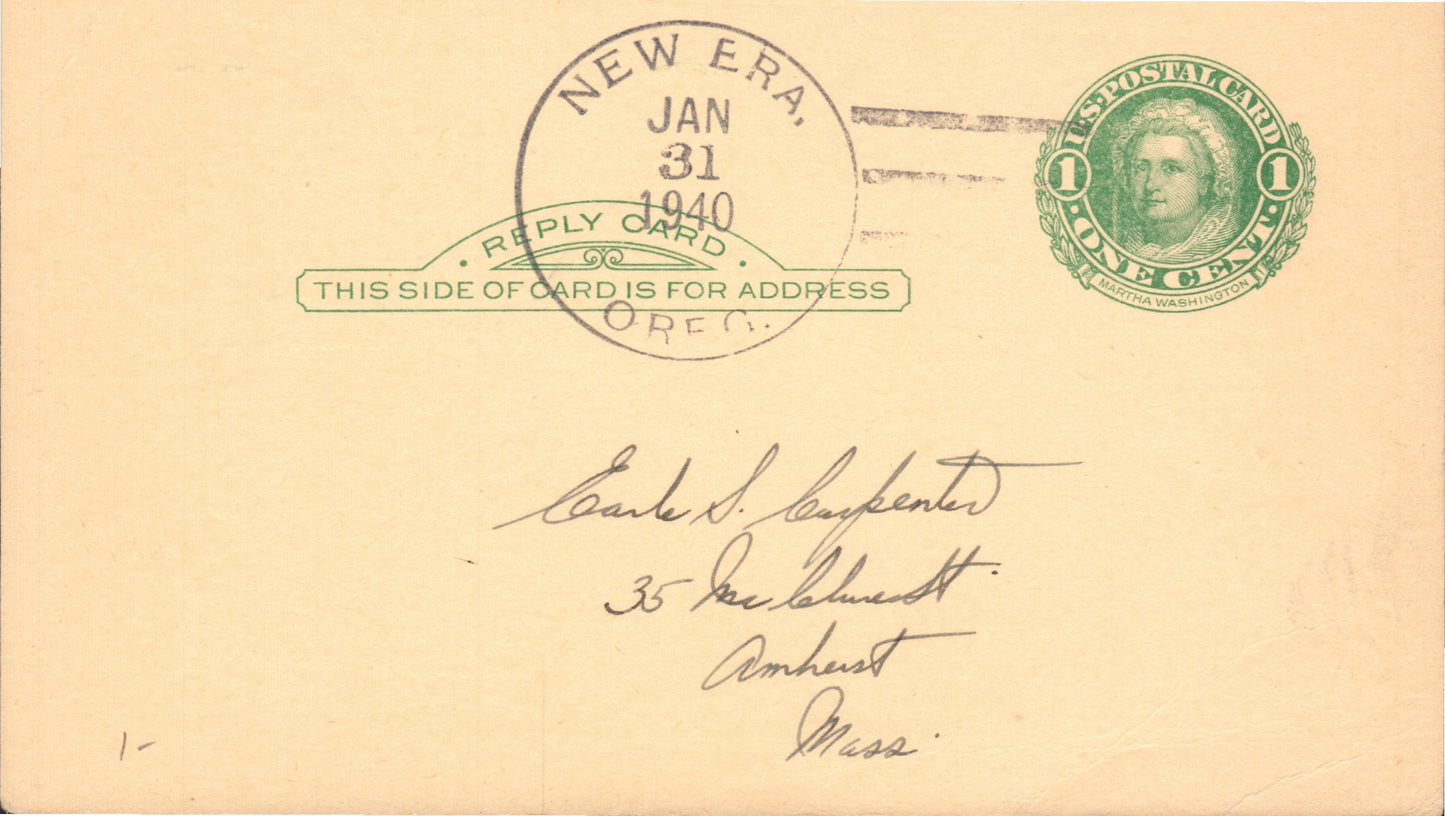 NEW ERA,
JAN
31
1940
OREG.
U.S. POSTAL CARD
1 1
· ONE CENT ·
MARTHA WASHINGTON
· REPLY CARD ·
THIS SIDE OF CARD IS FOR ADDRESS
Earle S. Carpenter
35 McClure St.
Amherst
Mass.
1-